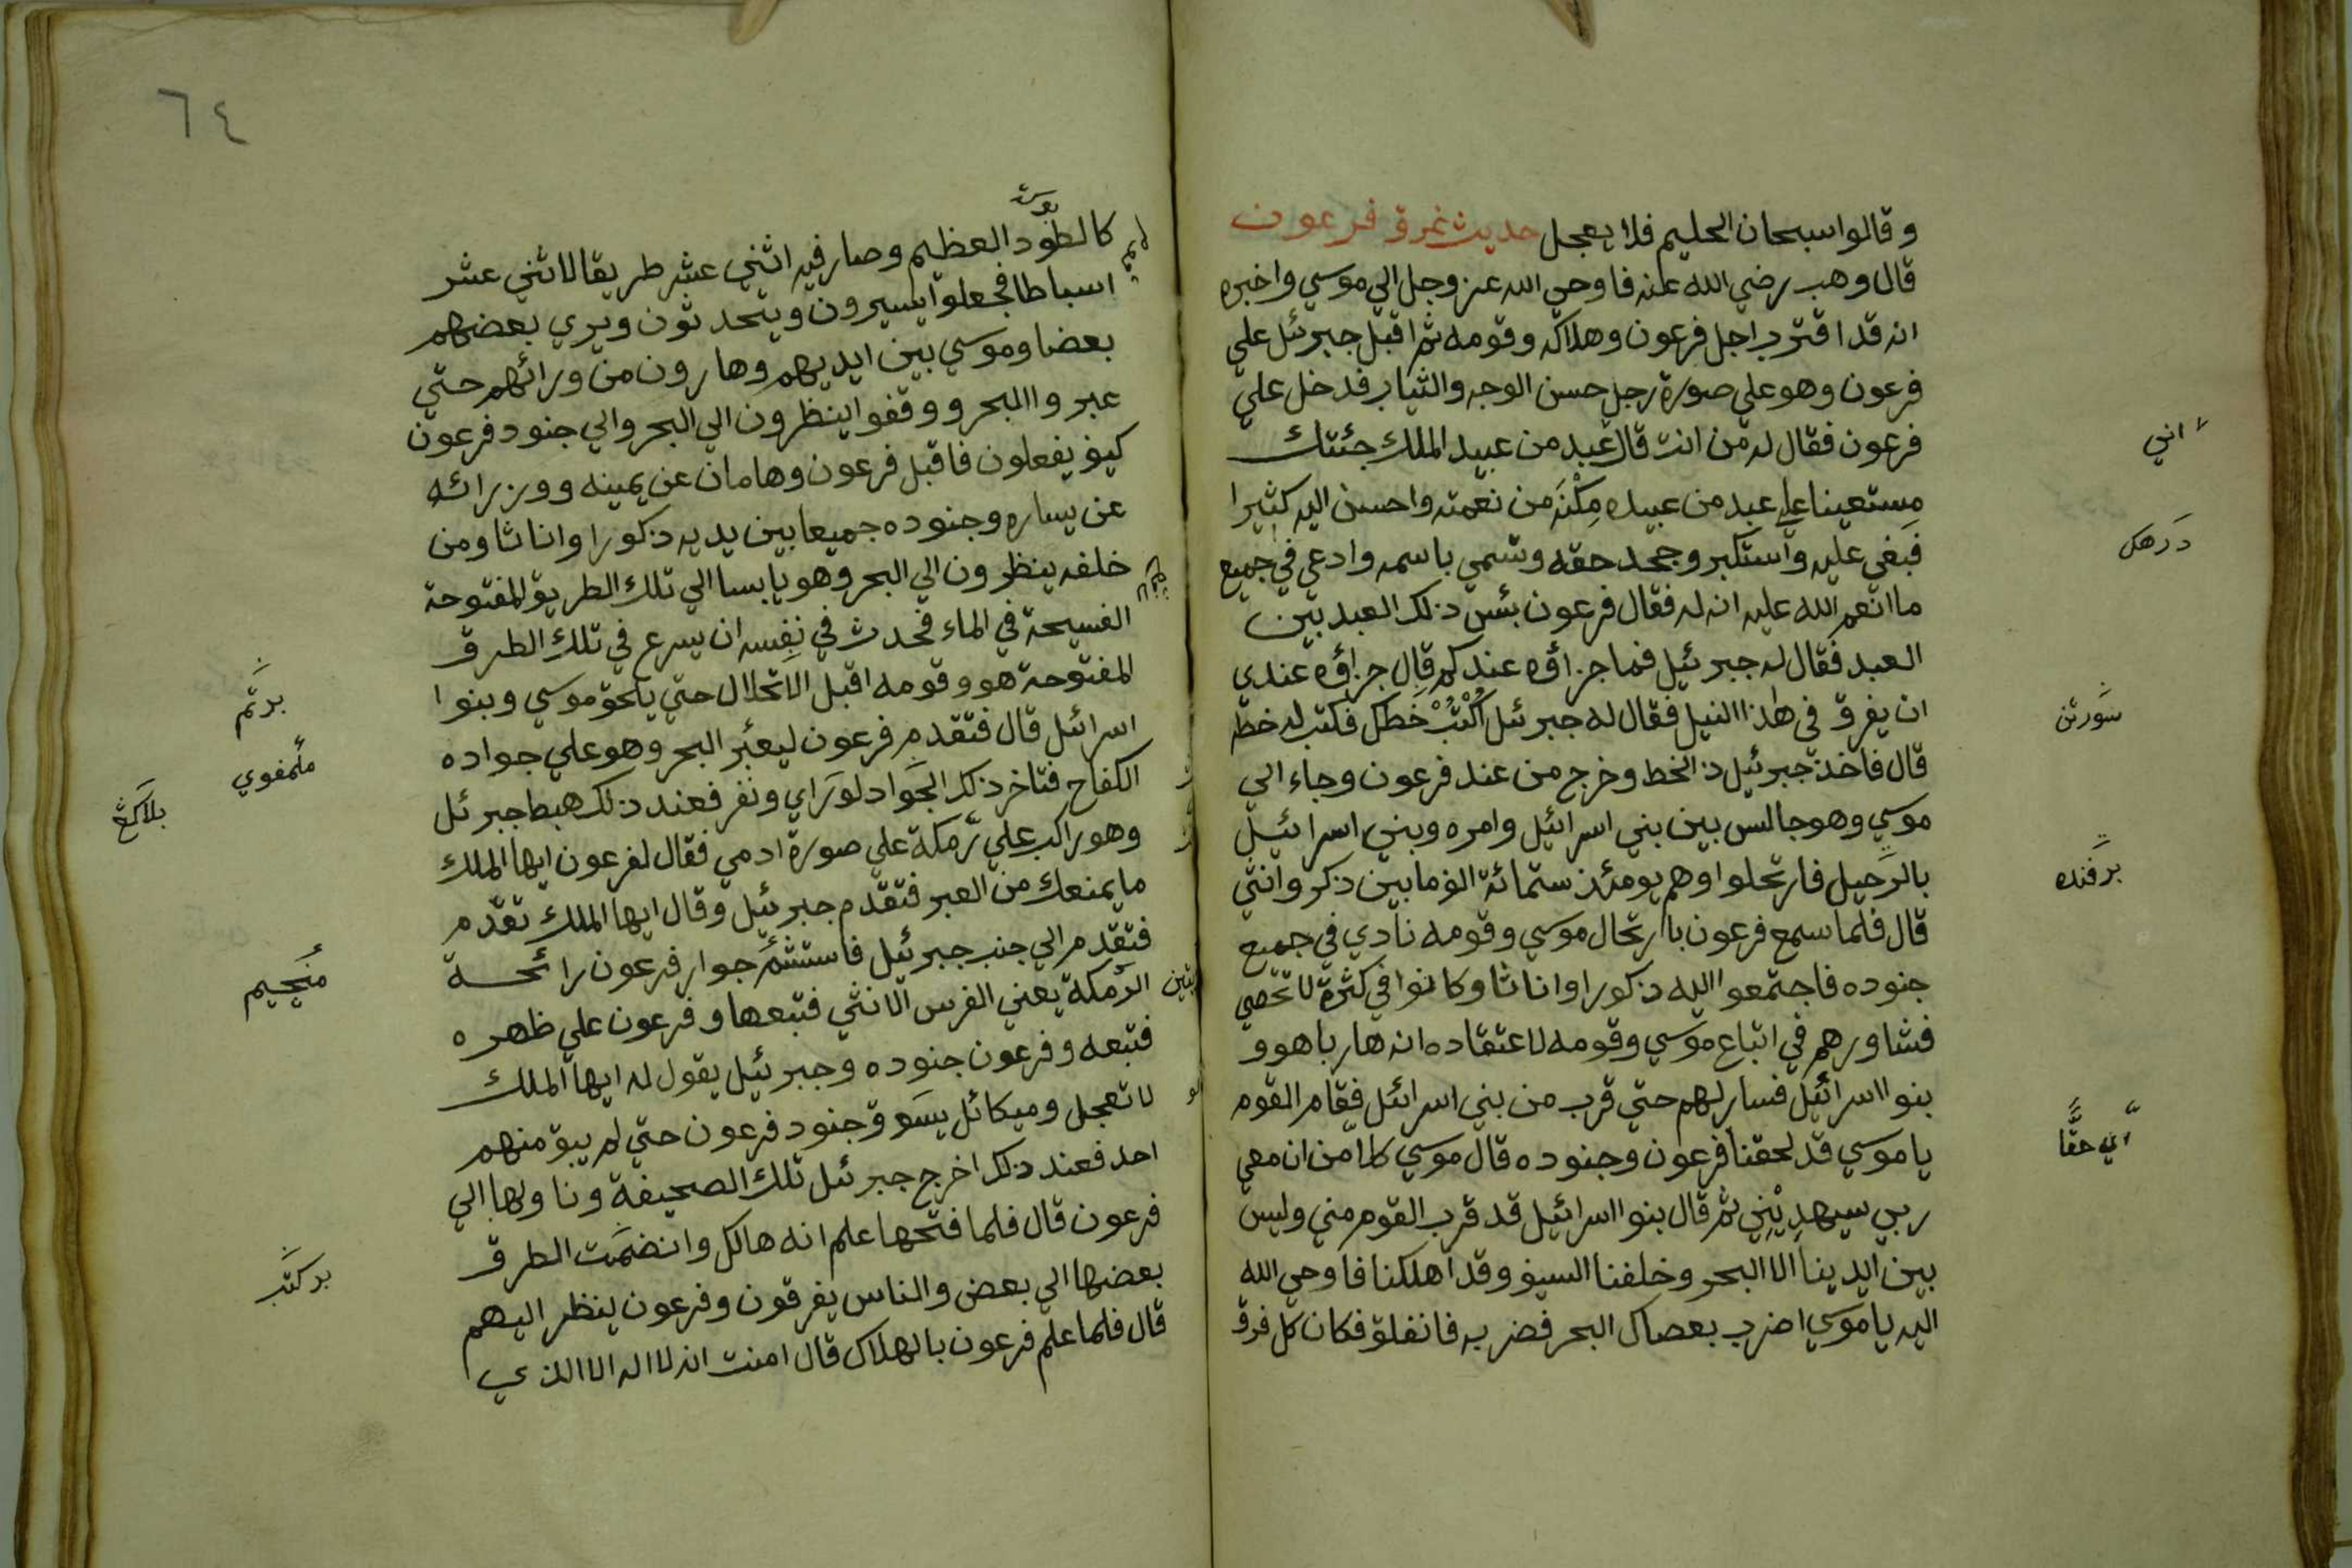 وقالوا سبحان الحليم فلا يعجل حديث غرق فرعون
قال وهب رضي الله عنه فاوحي الله عز وجل الي موسي واخبره
انه قد اقترب اجل فرعون وهلاكه وقومه ثم اقبل جبرئل علي
فرعون وهو علي صورة رجل حسن الوجه والثياب فدخل علي
فرعون فقال له من انت قال عبد من عبيد الملك جئتك
مستعينا علي عبد من عبيده مكنه من نعمته واحسن اليه كثيرا
فبغي عليه واستكبر وجحد حقه وتسمي باسمه وادعي في جميع
ما انعم الله عليه انه له فقال فرعون بئس ذلك العبد بين
العبد فقال له جبرئيل فما جزاؤه عندكم قال جزاؤه عندي
ان يغرق في هذا النيل فقال له جبرئل اكتب خطك فكتب له خطه
قال فاخذ جبرئيل ذ الخط وخرج من عند فرعون وجاء الي
موسي وهو جالس بين بني اسرائيل وامره وبني اسرائيل
بالرحيل فارتحلوا وهم يومئذ ستمائة الف ما بين ذكر وانثي
قال فلما سمع فرعون باارتحال موسي وقومه نادي في جميع
جنوده فاجتمعوا اليه ذكورا واناثا وكانوا في كثرة لا تحصي
فشاورهم في اتباع موسي وقومه لاعتقاده انه هاربا هو و
بنوا اسرائيل فسار لهم حتي قرب من بني اسرائل فقام القوم
يا موسي قد لحقنا فرعون وجنوده قال موسي كلا من ان معي
ربي سيهديني ثم قال بنوا اسرائيل قد قرب القوم مني وليس
بين ايدينا الا البحر وخلفنا السيف وقد اهلكنا فاوحي الله
اليه يا موسي اضرب بعصاك البحر فضربه فانفلق فكان كل فرق
اني
درهك
سورتن
برفنده
اي حقا
٦٤
كالطود العظيم وصار فيه اثني عشر طريقا لاثني عشر
اسباطا فجعلوا يسيرون ويتحدثون ويري بعضهم
بعضا وموسي بين ايديهم وهارون من ورائهم حتي
عبروا البحر ووقفوا ينظرون الي البحر والي جنود فرعون
كيف يفعلون فاقبل فرعون وهامان عن يمينه ووزرائه
عن يساره وجنوده جميعا بين يديه ذكورا واناثا ومن
خلفه ينظرون الي البحر وهو يابسا الي تلك الطريق المفتوحة
الفسيحة في الماء فحدث في نفسه ان يسرع في تلك الطرق
المفتوحة هو وقومه اقبل الانحلال حتي يلحق موسي وبنوا
اسرائل قال فتقدم فرعون ليعبر البحر وهو علي جواده
الكفاح فتاخر ذلك الجواد لوراي ونفر فعند ذلك هبط جبرئل
وهو راكب علي رمكة علي صورة ادمي فقال لفرعون ايها الملك
ما يمنعك من العبر فتقدم جبرئيل وقال ايها الملك تقدم
فتقدم الي جنب جبرئيل فاستشم جوار فرعون رائحة
الرمكة يعني الفرس الانثي فتبعها وفرعون علي ظهره
فتبعه وفرعون جنوده وجبرئيل يقول له ايها الملك
لا تعجل وميكائل يسوق جنود فرعون حتي لم يبق منهم
احد فعند ذلك اخرج جبرئل تلك الصحيفة وناولها الي
فرعون قال فلما فتحها علم انه هالك وانضمت الطرق
بعضها الي بعض والناس يغرقون وفرعون ينظر اليهم
قال فلما علم فرعون بالهلاك قال امنت انه لا اله الا الذي
برتم
ملمفوي
بلاكغ
منجيم
بركتب